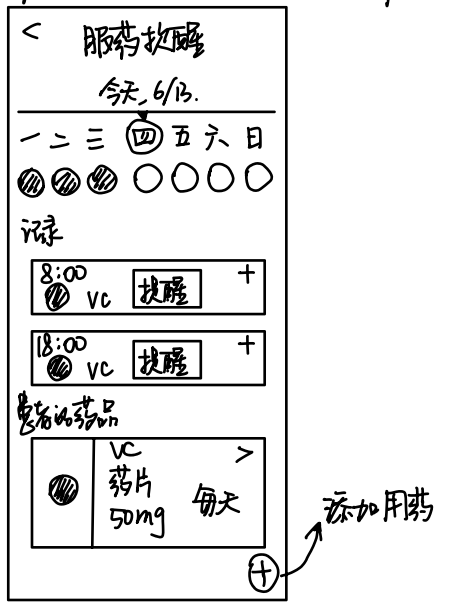 < 服药提醒
今天, 6/13.
一 二 三 四 五 六 日
记录
8:00 +
VC 提醒
18:00 +
VC 提醒
患者的药品
VC >
药片
50mg 每天
+ 添加用药